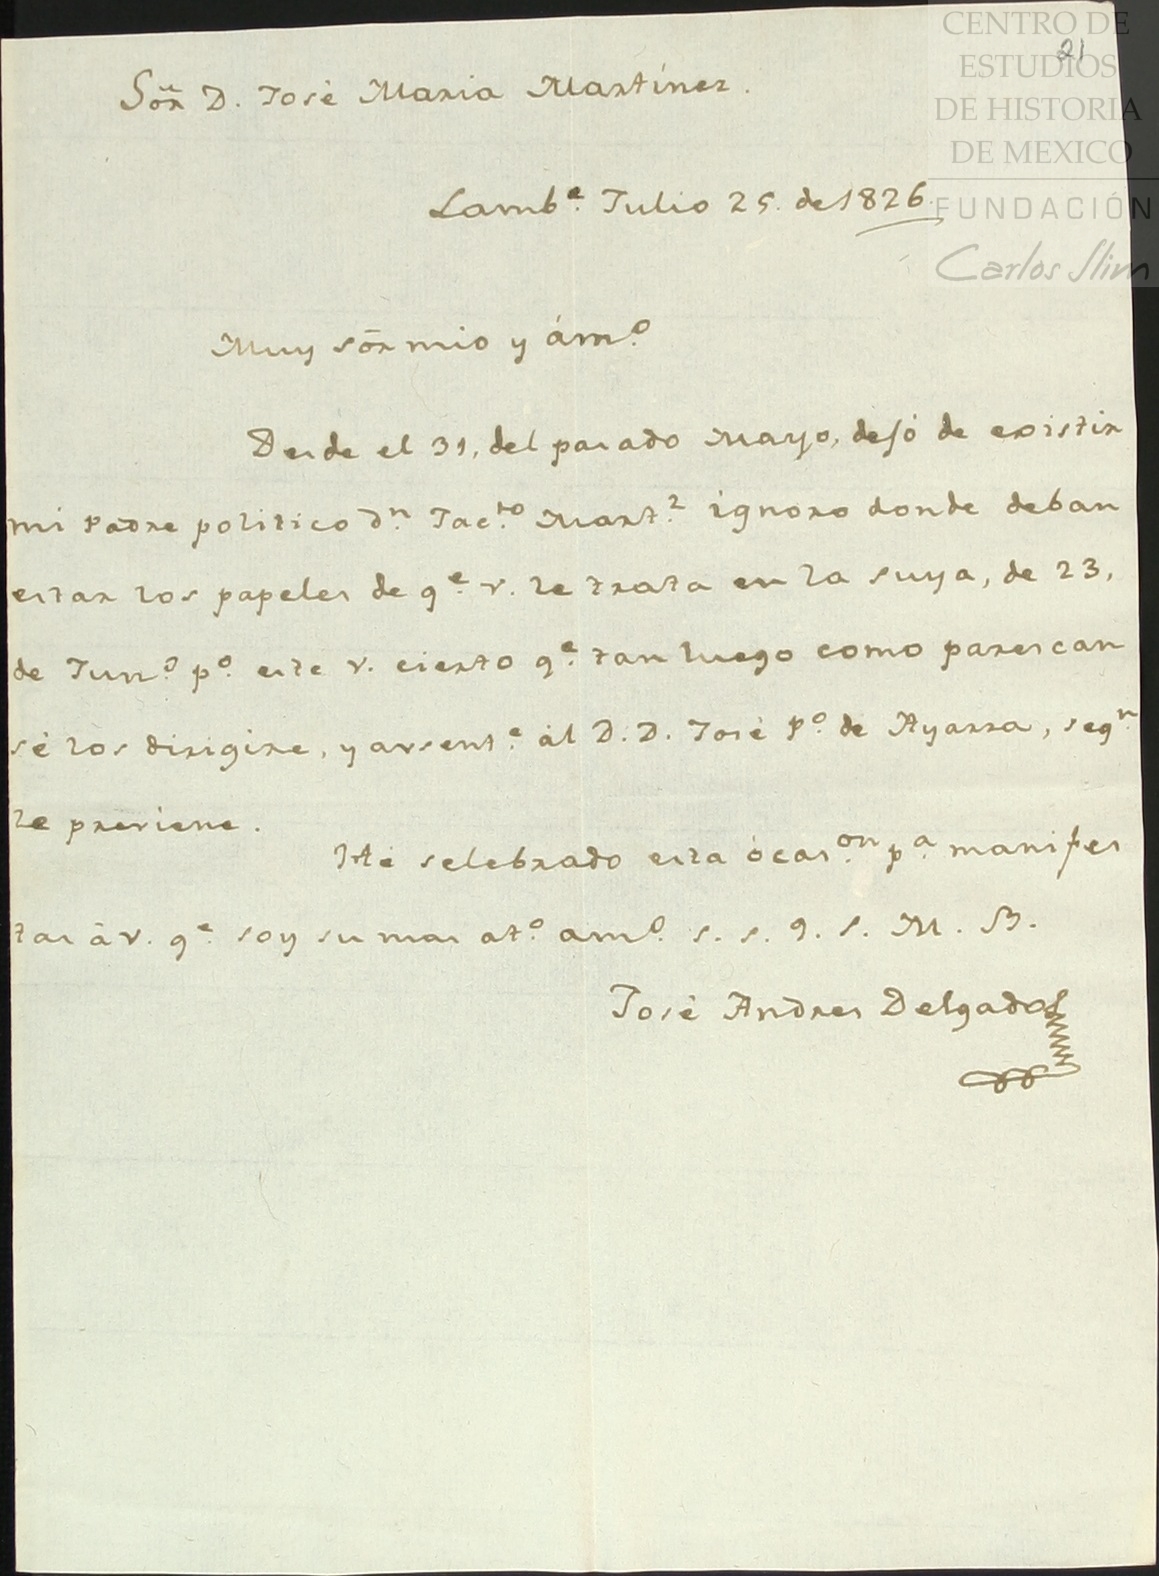 CENTRO DE
ESTUDIOS
DE HISTORIA
DE MEXICO
FUNDACIÓN
Carlos Slim
21
Sõr D. José Maria Martinez.
Lamb.e Julio 25. de 1826.
Muy sõr mio y ám.o
Desde el 31, del pasado Mayo, dejó de existir
mi Padre politico D.n Jac.to Mart.z ignoro donde deban
estar los papeles de q.e v. le trata en la suya, de 23,
de Jun.o p.o este v. cierto q.e tan luego como parescan
sé los dirigire, y avsent.e ál D. D. José P.o de Ayarra, seg.n
le previene.
Hé selebrado esta ócas.on p.a manifes
tar á v. q.e soy su mas at.o am.o s. s. q. s. M. B.
José Andres Delgado